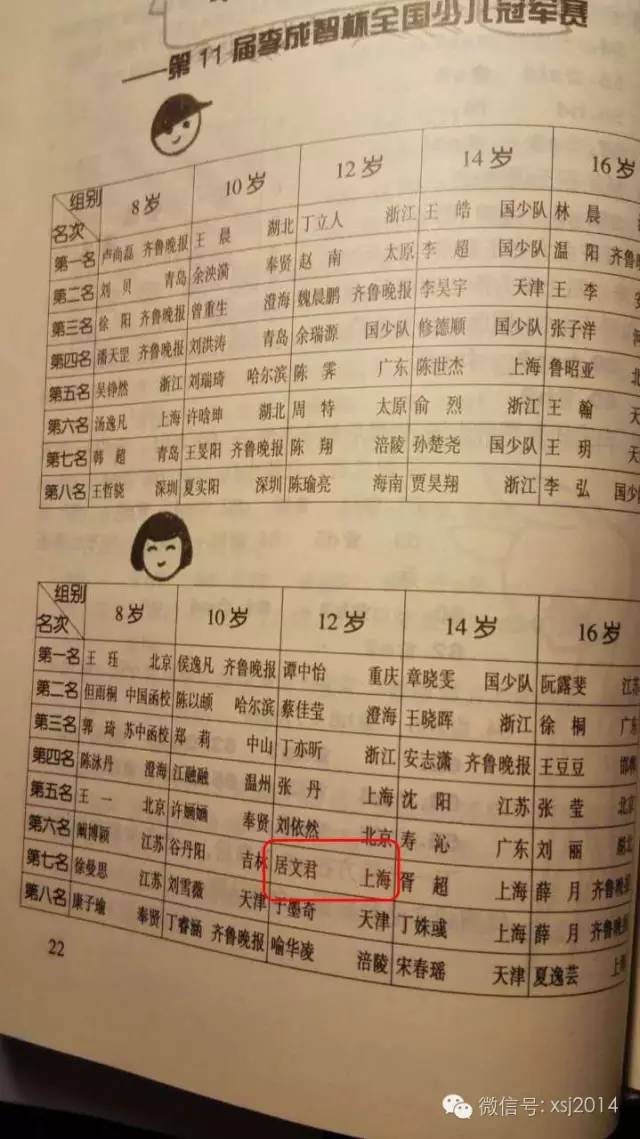 ——第11届李成智杯全国少儿冠军赛
组别 名次 8岁 10岁 12岁 14岁 16岁
第一名 卢尚磊 齐鲁晚报 王晨 湖北 丁立人 浙江 王皓 国少队 林晨
第二名 刘贝 青岛 余泱漪 奉贤 赵南 太原 李超 国少队 温阳 齐鲁晚
第三名 徐阳 齐鲁晚报 曾重生 澄海 魏晨鹏 齐鲁晚报 李昊宇 天津 王李 安
第四名 潘天罡 齐鲁晚报 刘洪涛 青岛 余瑞源 国少队 修德顺 国少队 张子洋 河
第五名 吴铮然 浙江 刘瑞琦 哈尔滨 陈霁 广东 陈世杰 上海 鲁昭亚 北
第六名 汤逸凡 上海 许晗坤 湖北 周特 太原 俞烈 浙江 王翰 天
第七名 韩超 青岛 王旻阳 齐鲁晚报 陈翔 涪陵 孙楚尧 国少队 王玥 天
第八名 王哲骁 深圳 夏实阳 深圳 陈瑜亮 海南 贾昊翔 浙江 李弘 国少
组别 名次 8岁 10岁 12岁 14岁 16岁
第一名 王珏 北京 侯逸凡 齐鲁晚报 谭中怡 重庆 章晓雯 国少队 阮露斐 江苏
第二名 但雨桐 中国函校 陈以頔 哈尔滨 蔡佳莹 澄海 王晓晖 浙江 徐桐 广东
第三名 郭琦 苏中函校 郑莉 中山 丁亦昕 浙江 安志潇 齐鲁晚报 王豆豆 邯郸
第四名 陈泳丹 澄海 江融融 温州 张丹 上海 沈阳 江苏 张莹 北京
第五名 王一 北京 许婳婳 奉贤 刘依然 北京 寿沁 广东 刘丽
第六名 阚博颖 江苏 谷丹阳 吉林 居文君 上海 胥超 上海 薛月 齐鲁晚
第七名 徐曼思 江苏 刘雪薇 天津 于墨奇 天津 丁姝彧 上海 薛月 齐鲁晚
第八名 康子瑜 奉贤 丁睿涵 齐鲁晚报 喻华凌 涪陵 宋春瑶 天津 夏逸芸 上海
22
微信号: xsj2014